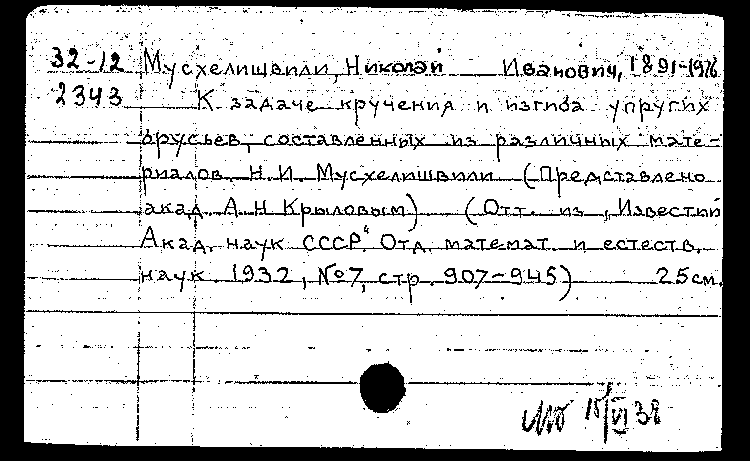 32-12 Мусхелишвили, Николай Иванович, 1891-1976
2343 К задаче кручения и изгиба упругих
брусьев, составленных из различных мате-
риалов. Н.И. Мусхелишвили (Представлено
акад. А.Н Крыловым) (Отт. из „Известий
Акад. наук СССР." Отд. математ. и естеств.
наук. 1932, №7, стр. 907-945) 25см.
15/VI 38